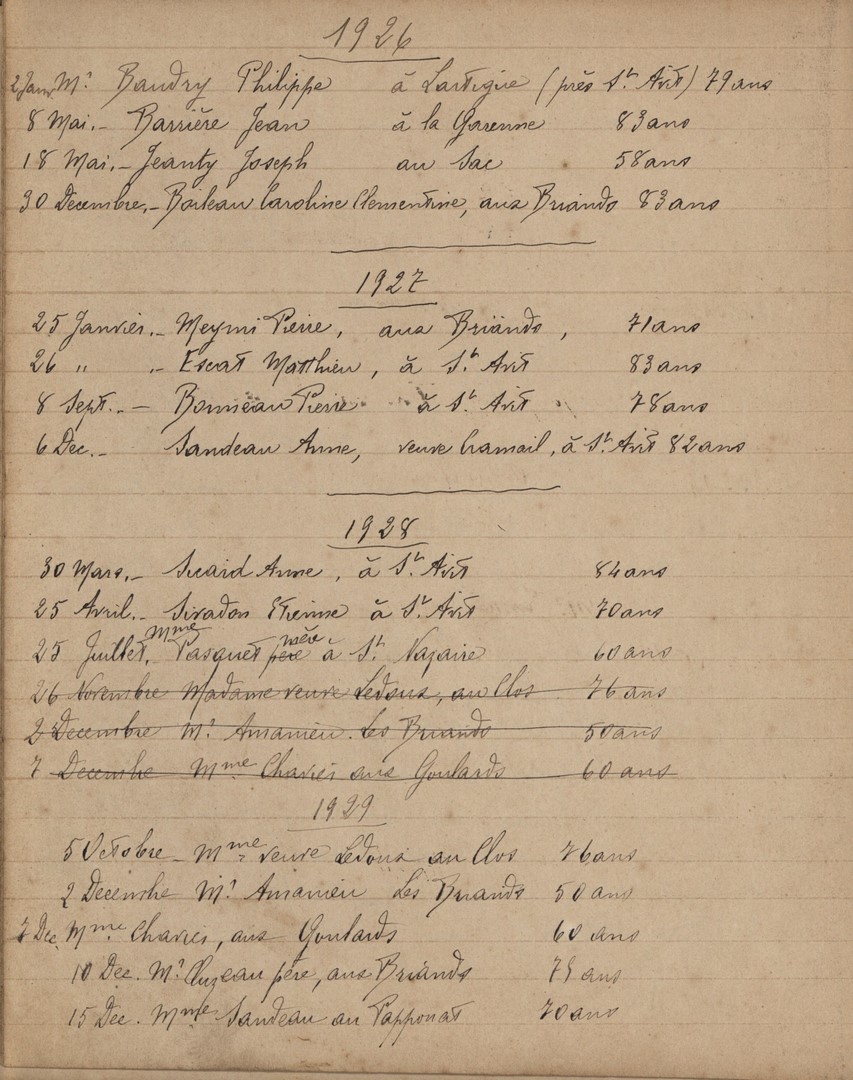 1926
2 Janv. Mr Baudry Philippe à Lartigue (près St Avit) 79 ans
8 Mai.- Barrière Jean à la Garenne 83 ans
18 Mai.- Jeanty Joseph au Sac 58 ans
30 Decembre.- Boileau Caroline Clementine, aux Briands 83 ans
1927
25 Janvier.- Meymi Pierre, aux Briands, 71 ans
26 " .- Escat Matthieu, à St Avit 83 ans
8 Sept..- Bonneau Pierre à St Avit 78 ans
6 Dec.- Sandeau Anne, veuve Cramail, à St Avit 82 ans
1928
30 Mars.- Sicard Anne, à St Avit 84 ans
25 Avril.- Sivadon Etienne à St Avit 70 ans
25 Juillet.- Mme Pasquet père mère à St Nazaire 60 ans
26 Novembre Madame veuve Ledoux, au Clos 76 ans
2 Decembre Mr Amanieu. Les Briands 50 ans
7 Decembre Mme Chariès aux Goulards 60 ans
1929
5 Octobre - Mme veuve Ledoux au Clos 76 ans
2 Decembre Mr Amanieu Les Briands 50 ans
7 Dec. Mme Chariès, aux Goulards 60 ans
10 Dec. Mr Cluzeau père, aux Briands 79 ans
15 Dec. Mme Sandeau au Papponat 70 ans